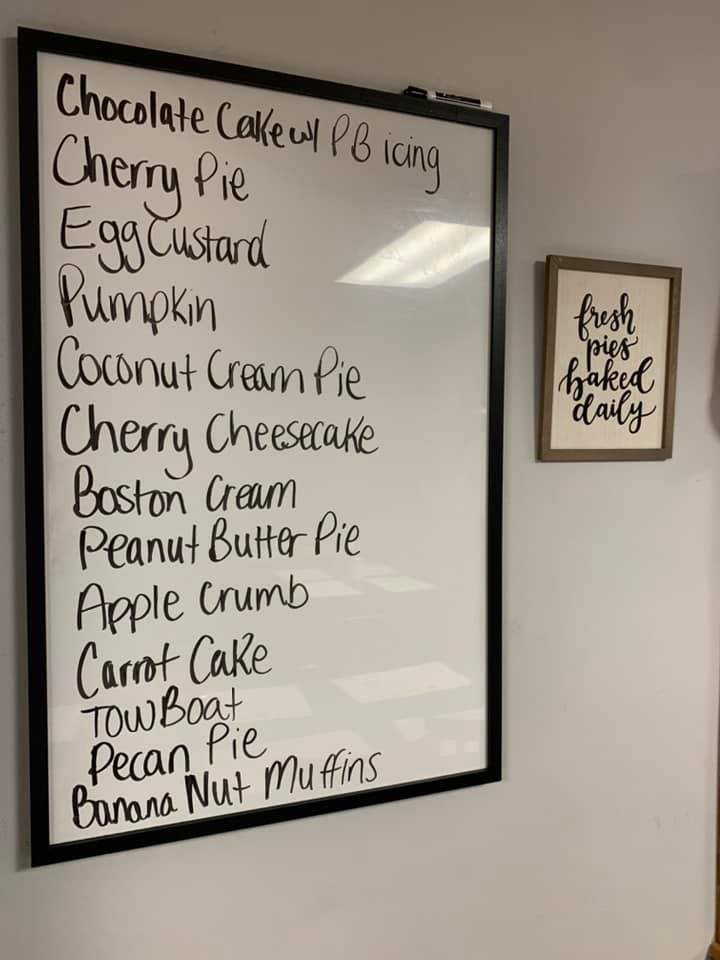 Chocolate Cake w/ PB icing
Cherry Pie
Egg Custard
Pumpkin
Coconut Cream Pie
Cherry Cheesecake
Boston Cream
Peanut Butter Pie
Apple Crumb
Carrot Cake
TOWBoat
Pecan Pie
Banana Nut Muffins
fresh
pies
baked
daily